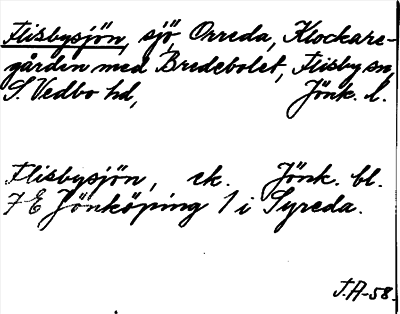 Flisbysjön, sjö, Orreda, Klockare-
gården med Bredebolet, Flisby sn,
S. Vedbo hd, Jönk. l.
Flisbysjön, ek. Jönk. bl.
7 E Jönköping 1 i Syreda.
J.A-58.